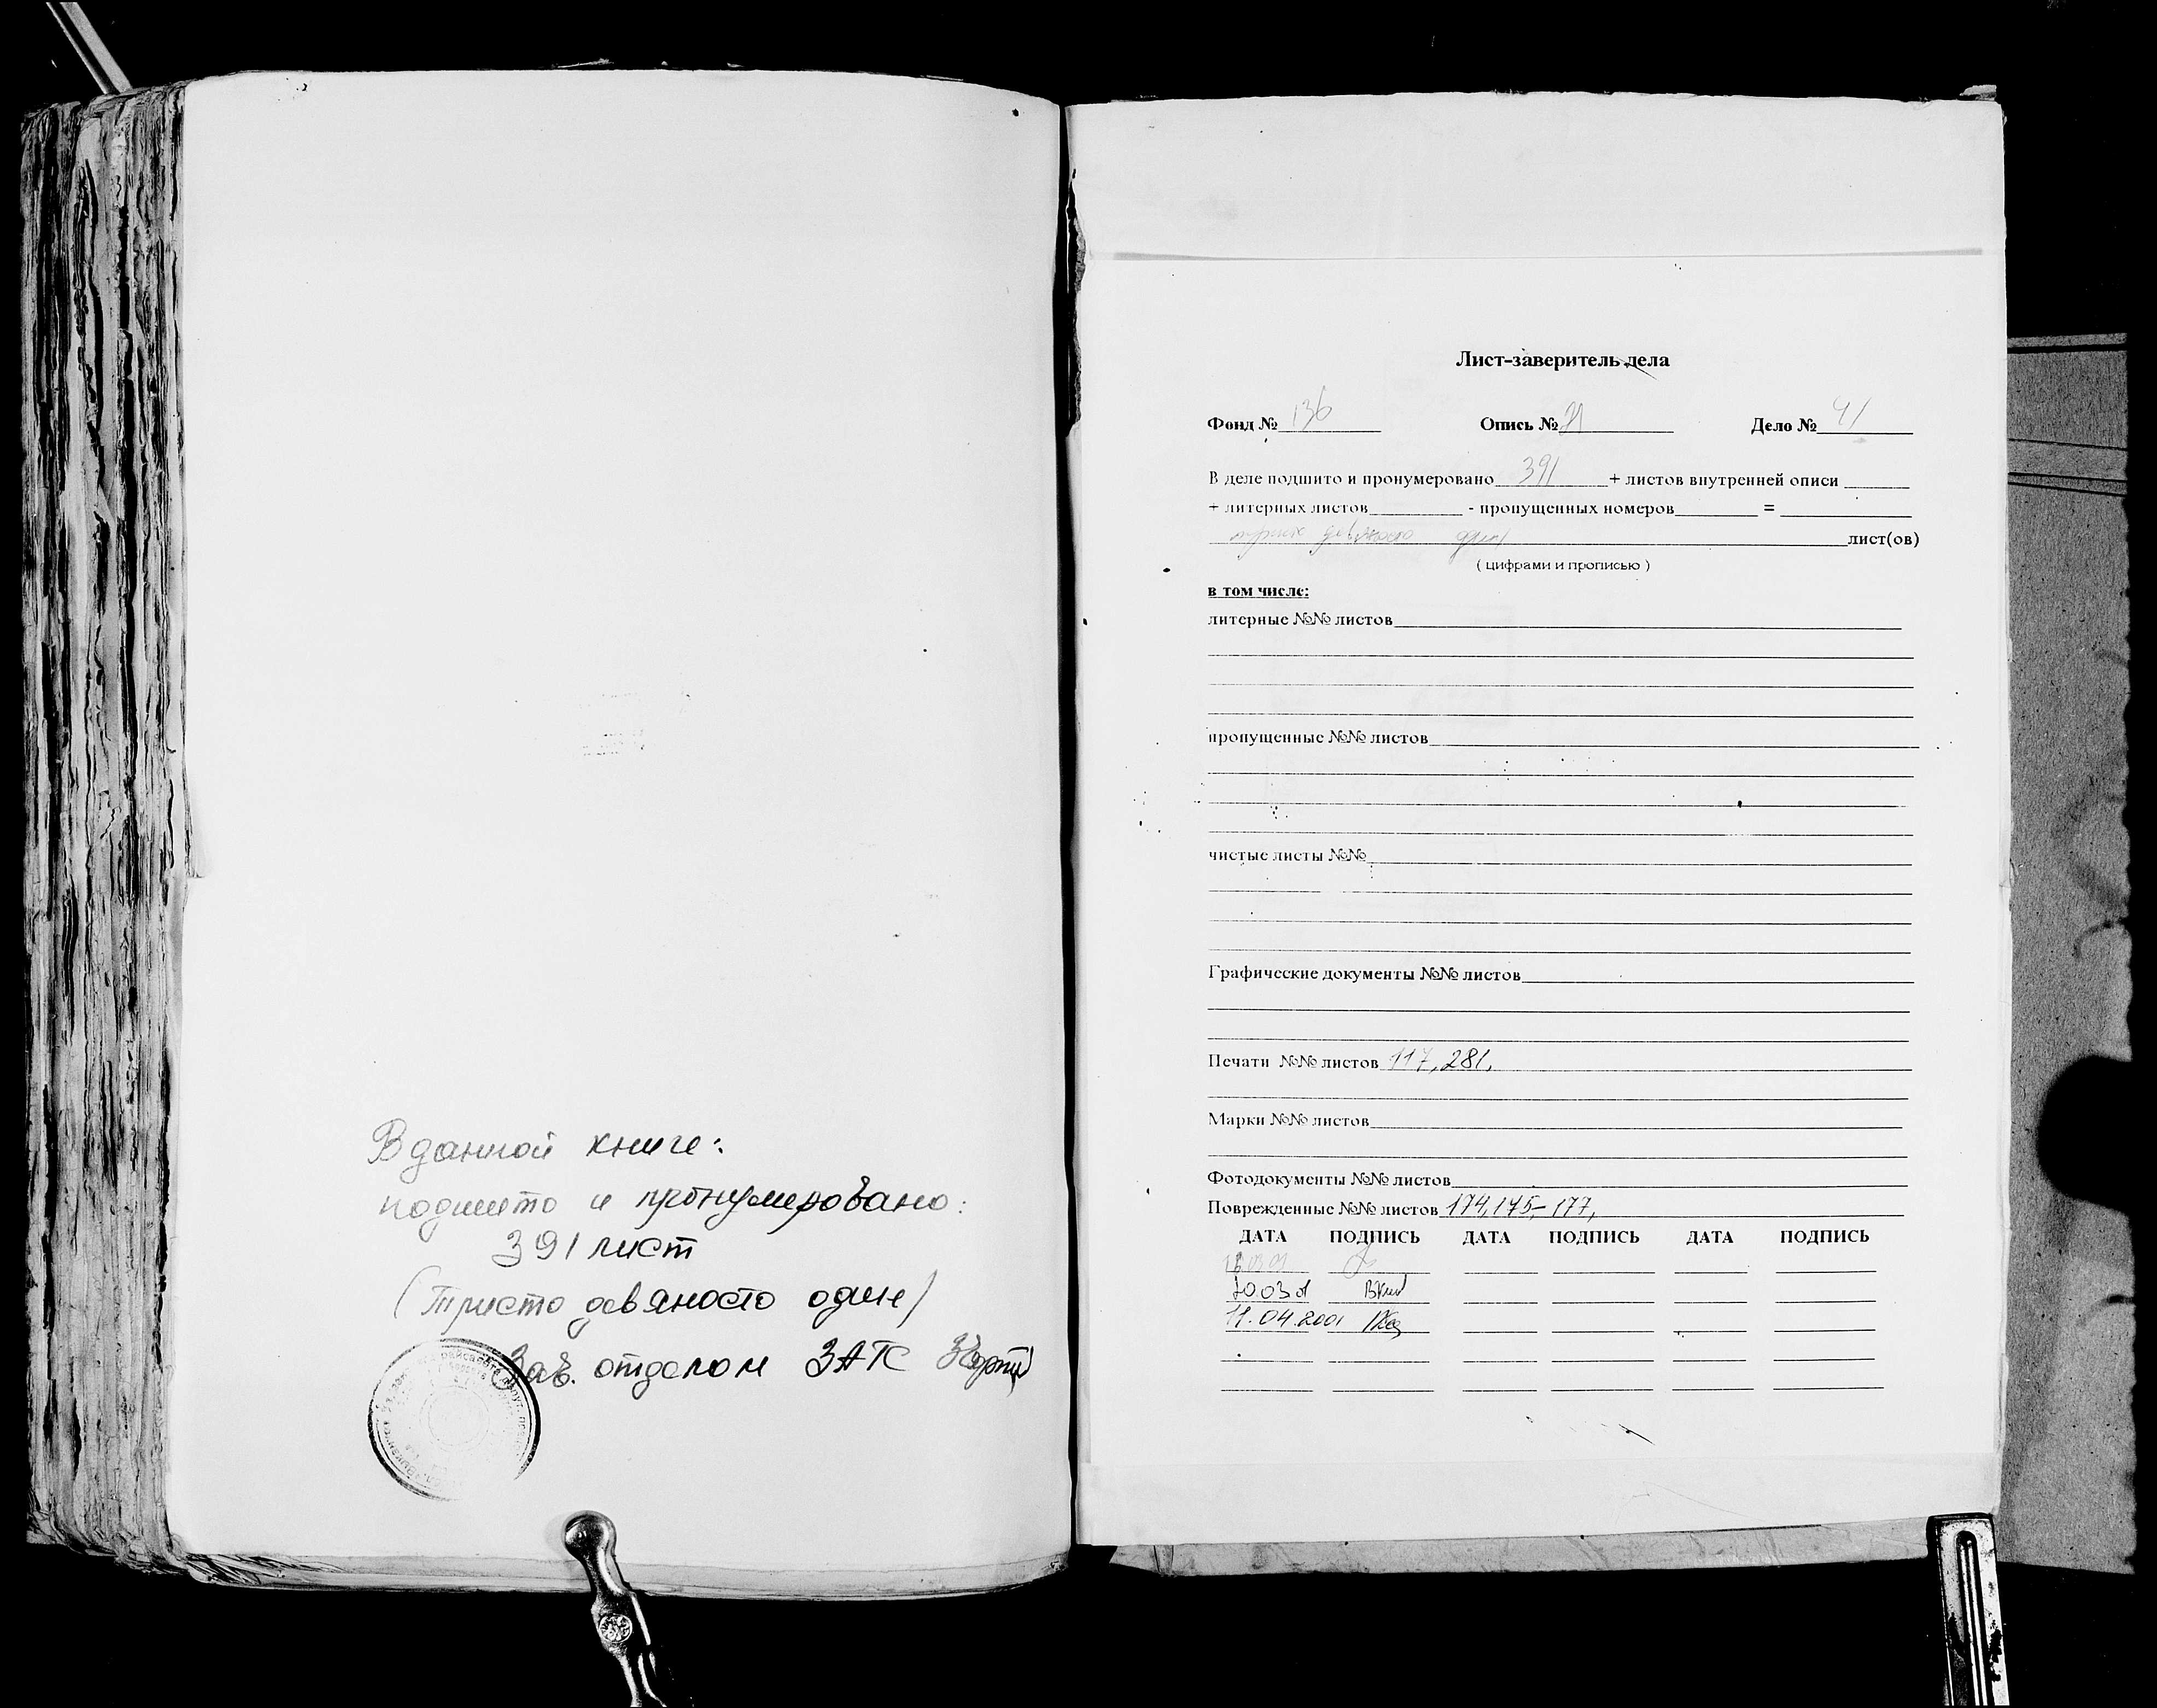 В данной книге:
подшито и пронумеровано:
391 лист
(Триста девяносто один)
Зав. отделом ЗАГС
Лист-заверитель дела
Фонд № 136 Опись № 21 Дело № 41
В деле подшито и пронумеровано 391 + листов внутренней описи
+ литерных листов - пропущенных номеров =
триста девяносто один лист(ов)
( цифрами и прописью )
в том числе:
литерные №№ листов
пропущенные №№ листов
чистые листы №№
Графические документы №№ листов
Печати №№ листов 117, 281,
Марки №№ листов
Фотодокументы №№ листов
Поврежденные №№ листов 174, 175-177,
ДАТА ПОДПИСЬ ДАТА ПОДПИСЬ ДАТА ПОДПИСЬ
11.04.2001